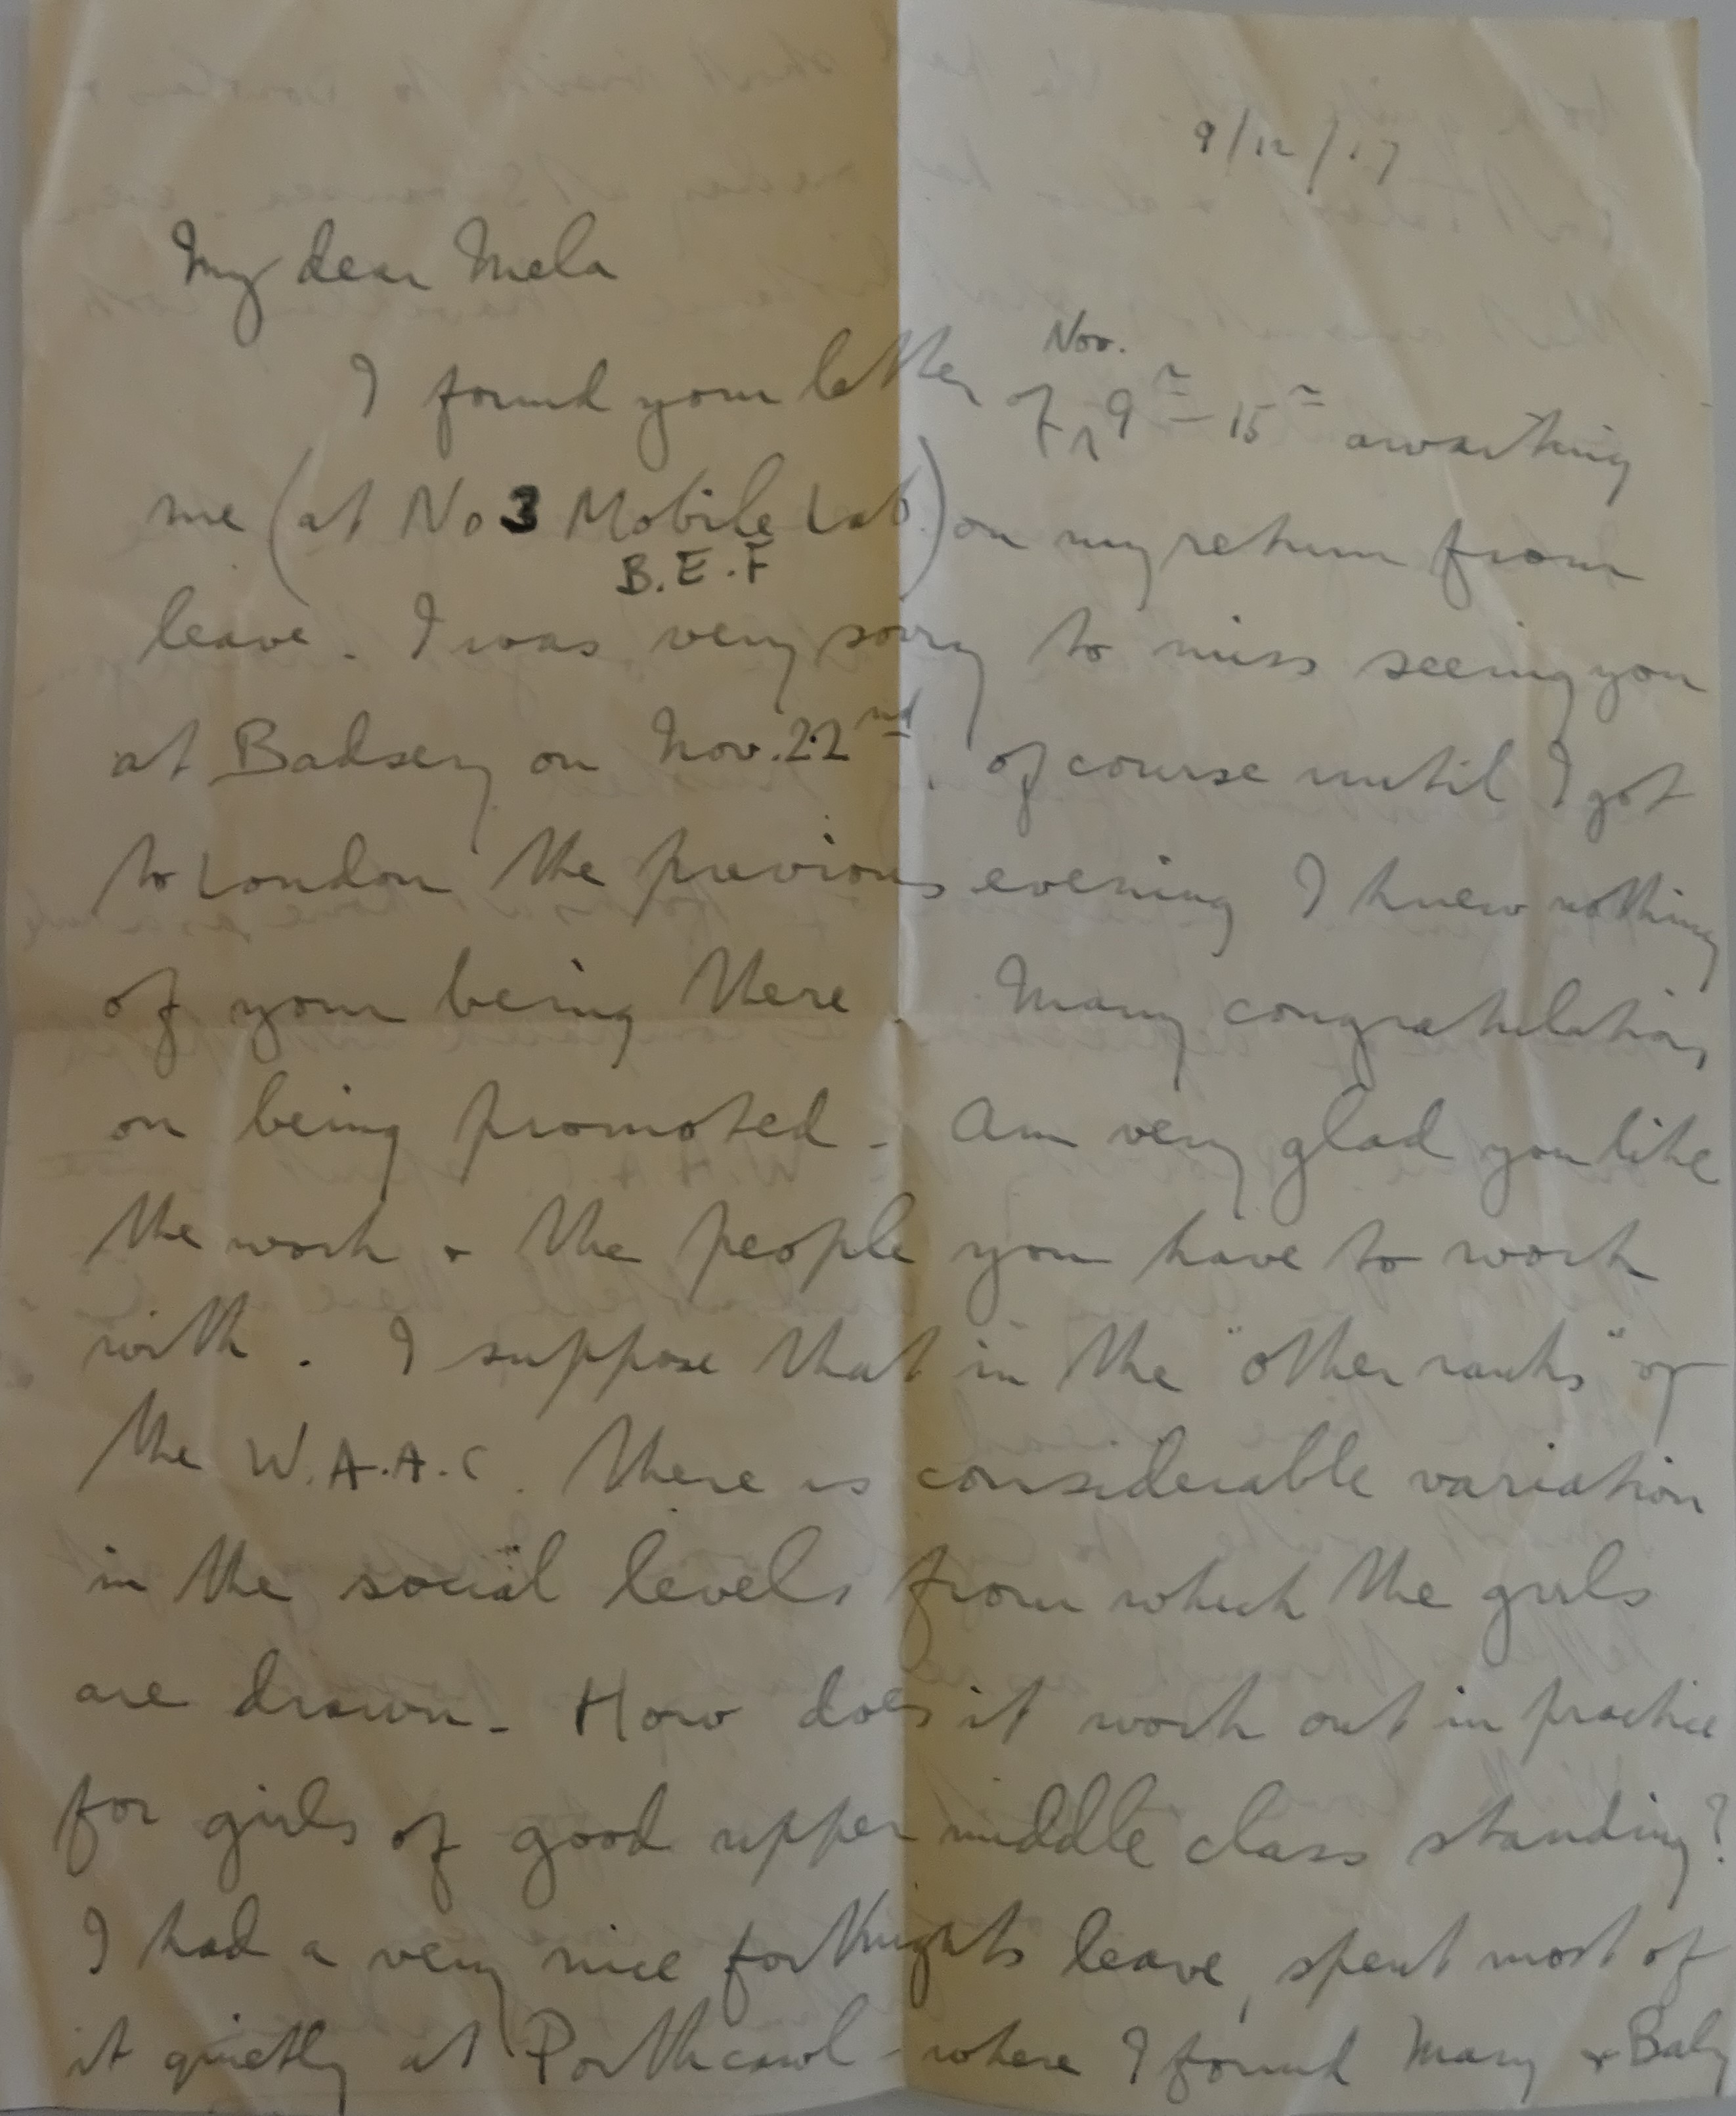 9/12/17
My dear Mela
I found your letter of Nov. 9th - 15th awaiting
me (at No 3 Mobile Lab.) on my return from
B.E.F
leave. I was very sorry to miss seeing you
at Badsey on Nov. 22nd, of course until I got
to London the previous evening I knew nothing
of your being there. Many congratulations
on being promoted - Am very glad you like
the work & the people you have to work
with. I suppose that in the "other ranks" of
the W.A.A.C. there is considerable variation
in the social levels from which the girls
are drawn - How does it work out in practice
for girls of good upper middle class standing?
I had a very nice fortnights leave, spent most of
it quietly at Porthcawl - where I found Mary & Baby